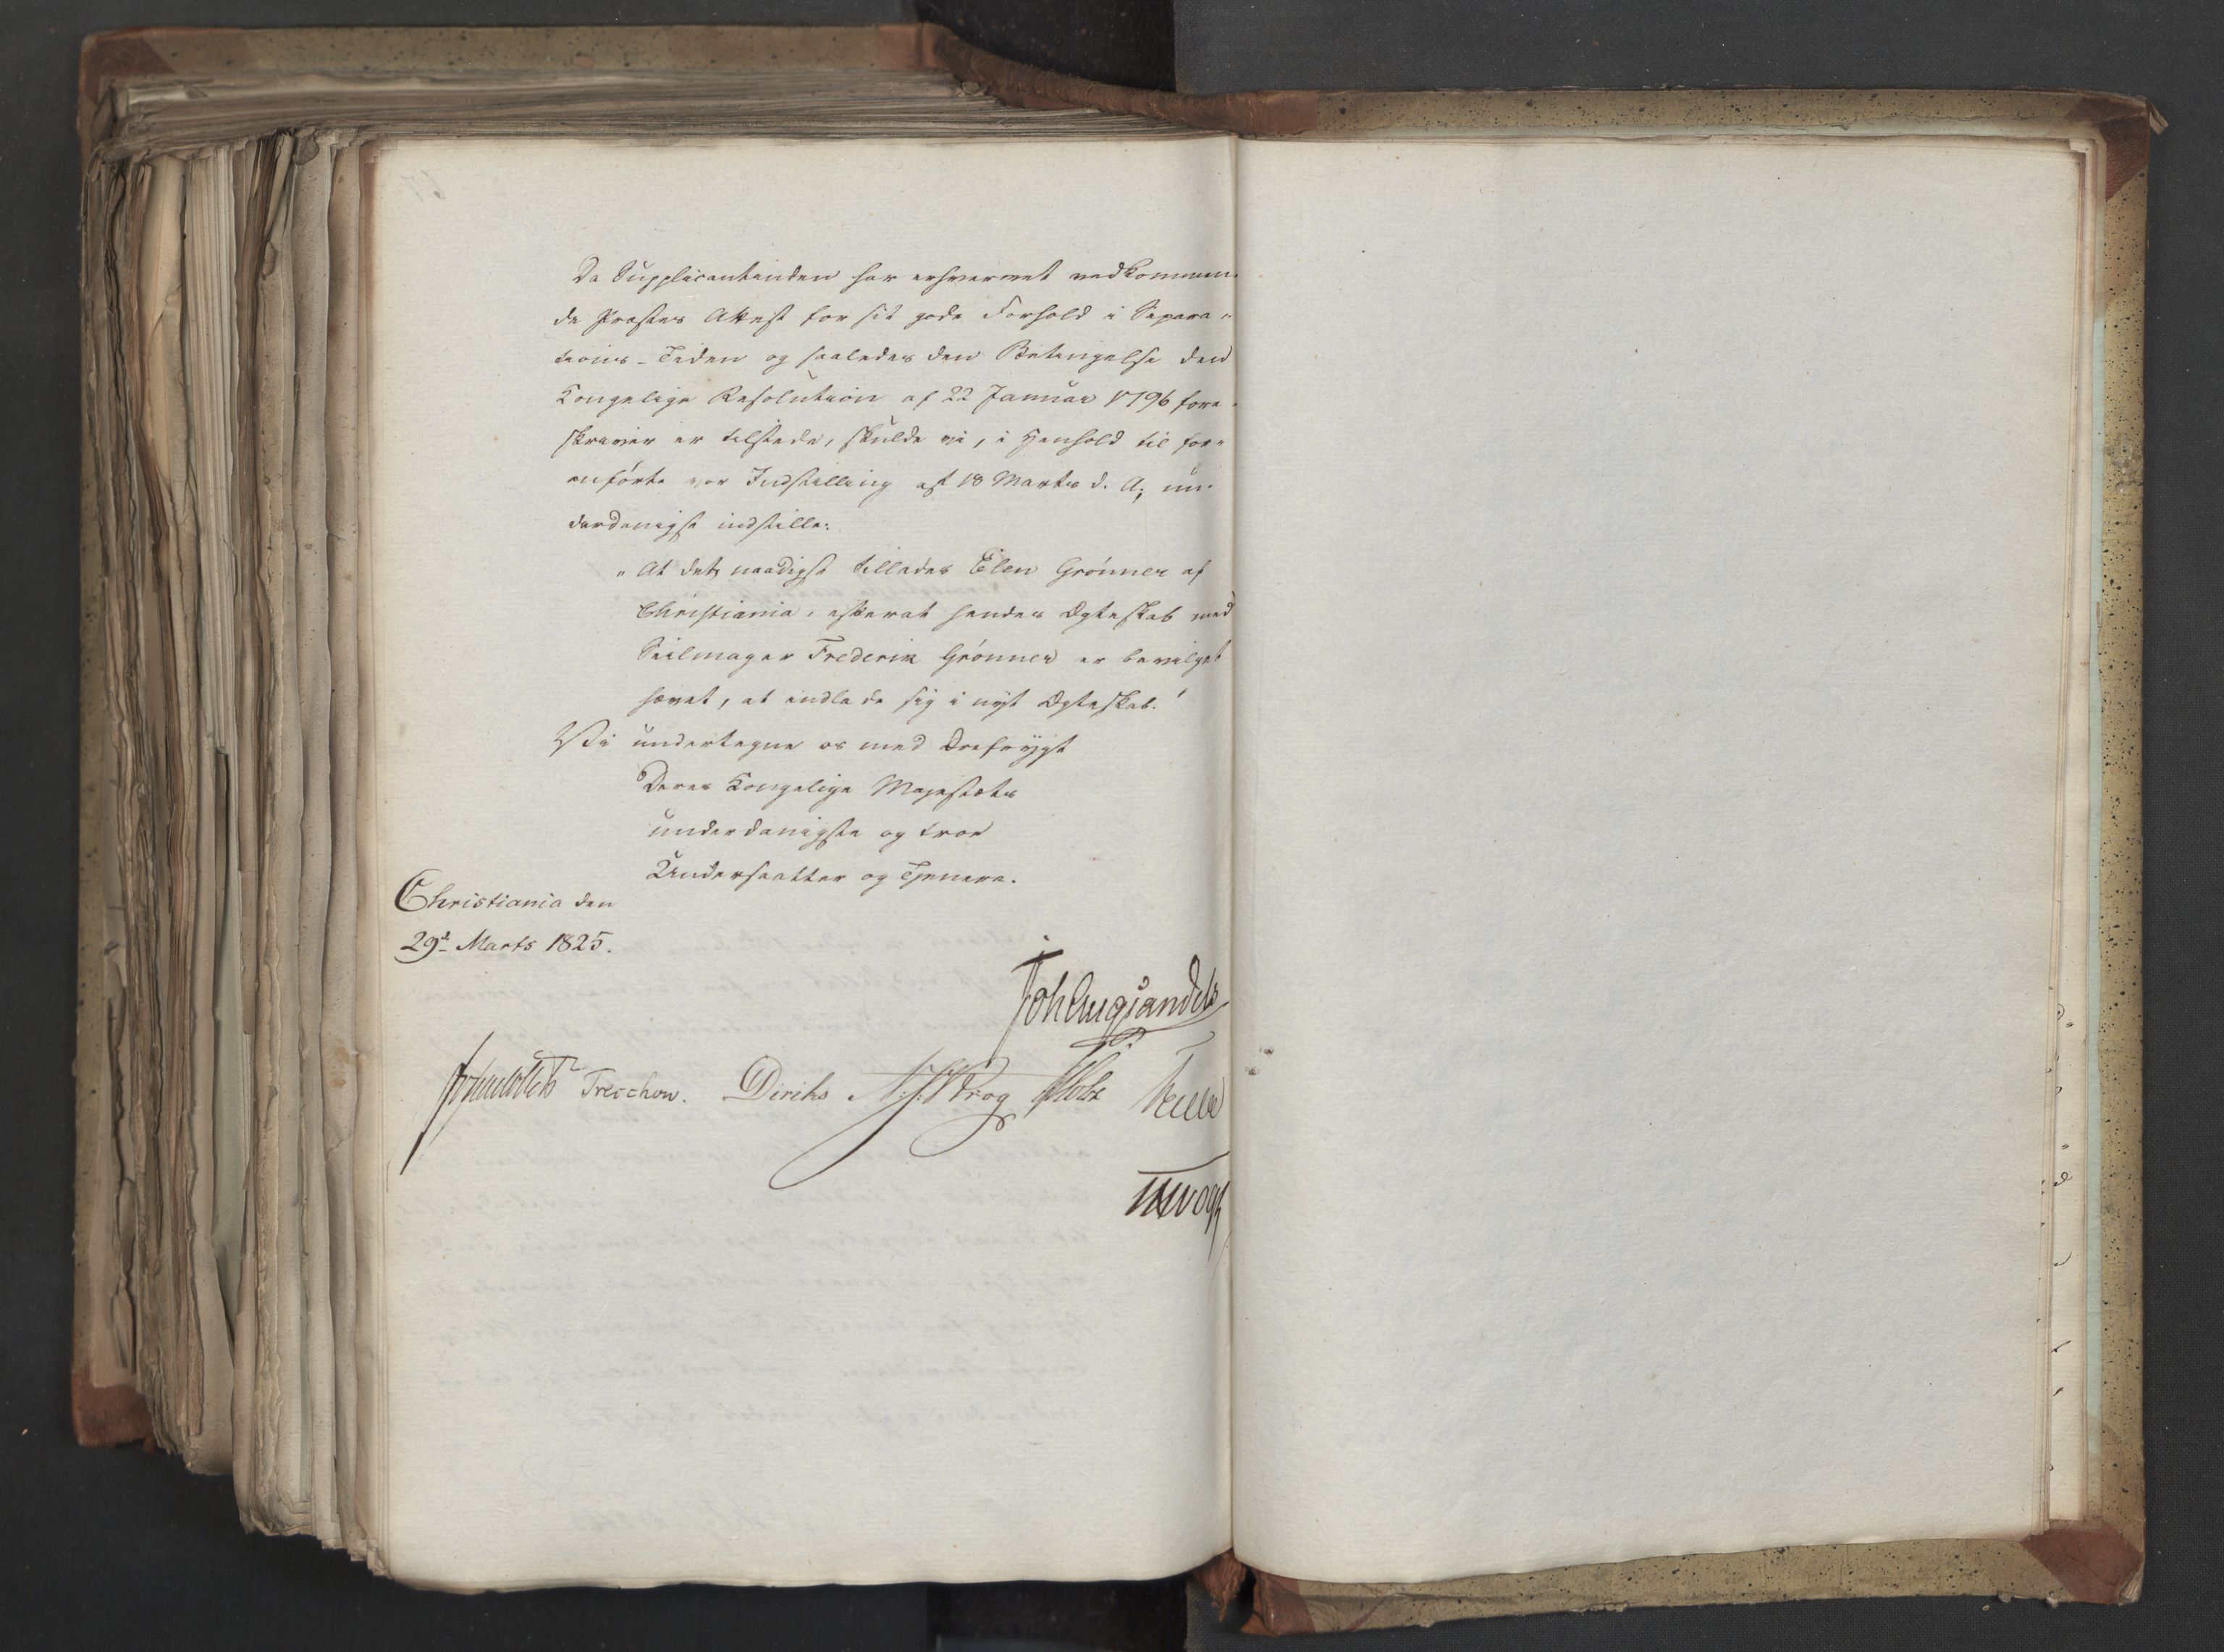 Da Supplicantinden har erhvervet vedkommen-
de Præstes Attest for sit gode Forhold i Separa-
tions-Tiden og saaledes den Betingelse den
Kongelige Resolution af 22 Januar 1796 fore-
skriver er tilstede, skulde vi, i Henhold til for-
anførte vor Indstilling af 18 Marts d. A; un-
derdanigst indstille:
"At det naadigst tillades Elen Grønner af
Christiania, efterat hendes Ægteskab med
Seilmager Frederik Grønner er bevilget
hævet, at indlade sig i nyt Ægteskab."
Vi undertegne os med Ærefrygt
Deres Kongelige Majestæts
underdanigste og troe
Undersaatter og Tjenere.
Christiania den
29d. Marts 1825.
Joh Aug Sandels
JCollett Treschow. Diriks N.J. Krog Holst
JHVogt